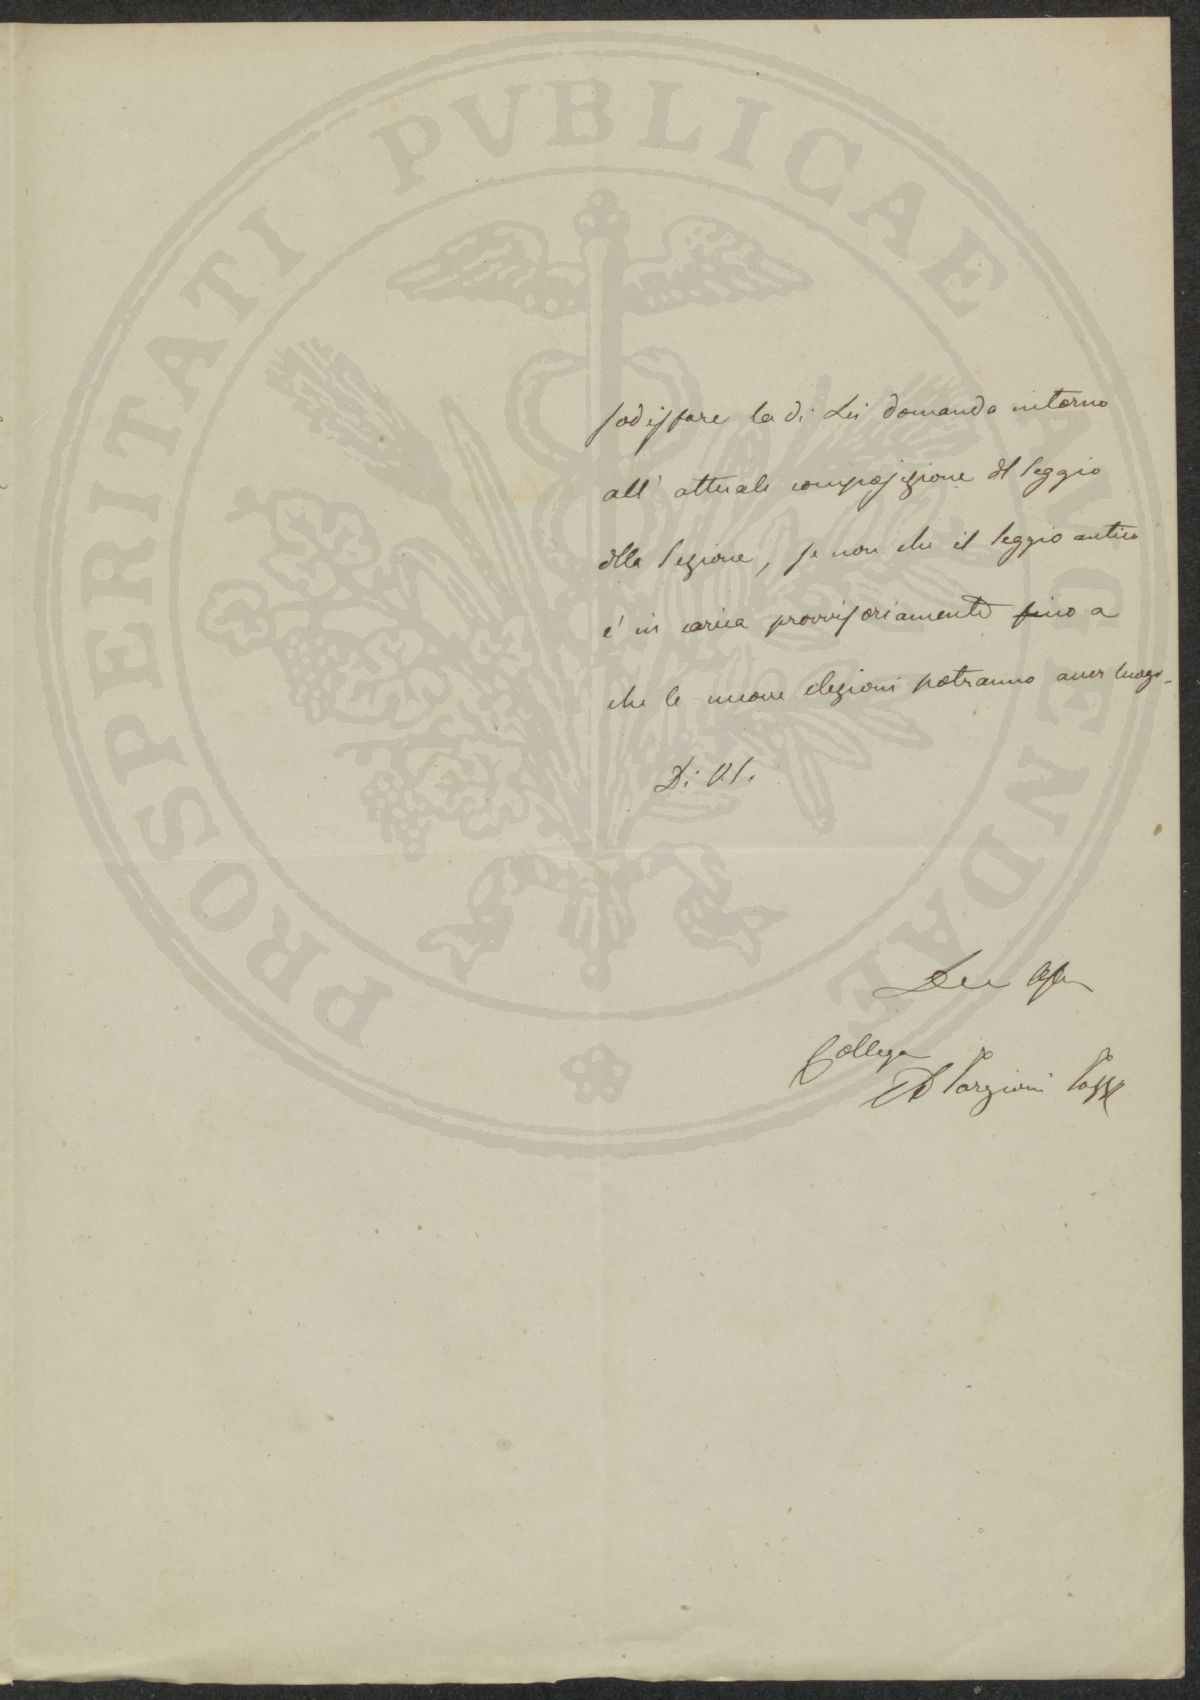 PROSPERITATI PUBLICAE AUGENDAE
sodisfare la di Lei domanda intorno
all' attuale composizione del seggio
della sezione, se non che il seggio antico
è in carica provvisoriamente fino a
che le nuove elezioni potranno aver luogo.
Di V.S.
Collega
Targioni Tozz